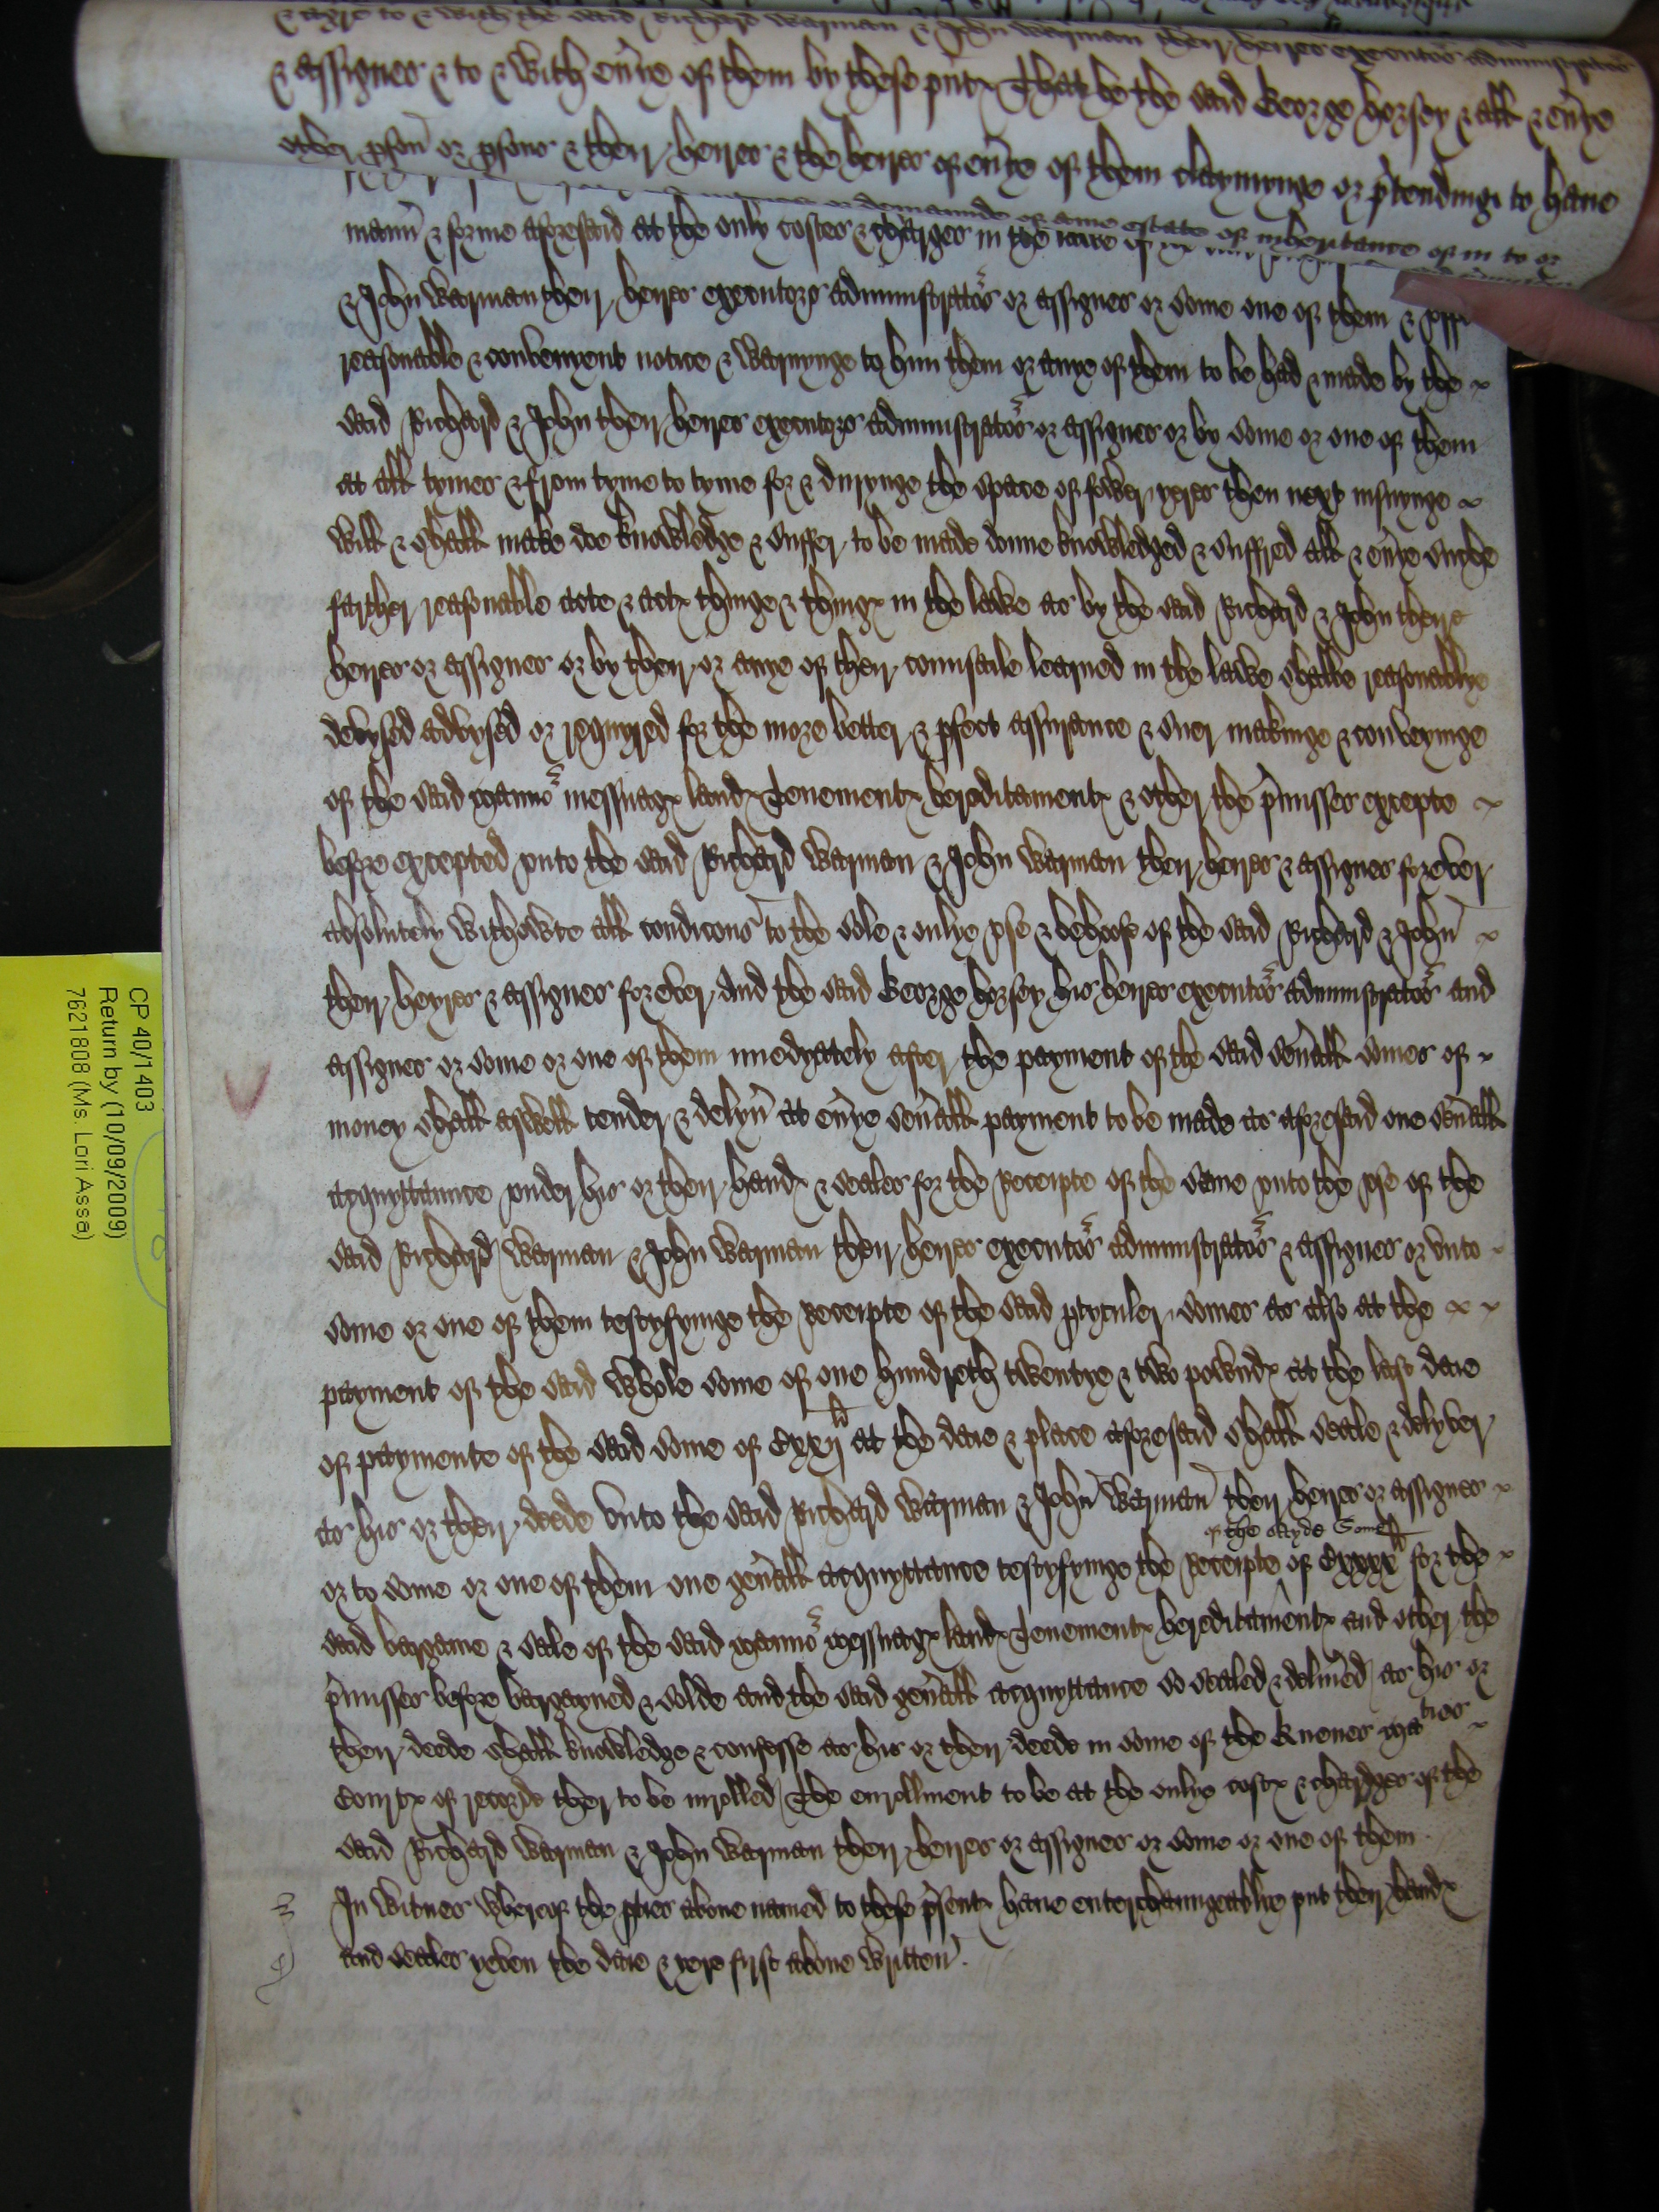 & agre to & with the said Richard Warman & John Warman their heires executors administrators
& assignes & to & with eu'ye of them by these p'ntes That he the said George horsey & all & eu'ye
other p'son or p'sons & their heires & the heires of eu'ye of them claymynge or p'tendinge to haue
or demaunde of anie estate of inheritance of in to or
mann' & forme aforesaid at the only costes & charges in the lawe of the said
& John Warman their heires executors administrators or assignes or some one of them &
reasonable & convenyent notice & warnynge to him them or anye of them to be had & made by the
said Richard & John their heires executors administrators or assignes or by some or one of them
at all tymes & from tyme to tyme for & durynge the space of fower yeres then next insuynge
will & shall make doe knowledge & suffer to be made donne knowledged & suffred all & eu'ye suche
farther reasonable acte & actes thinge & thinges in the lawe as by the said Richard & John their
heires or assignes or by their or anye of their counsaile learned in the lawe shalbe reasonablye
devysed advysed or requyred for the more better & p'fect assurance & suer makinge & conveyinge
of the said mannor messuages landes Tenementes hereditamentes & other the p'misses excepte
before excepted vnto the said Richard Warman & John Warman their heires & assignes forever
absolutely withowte all condicons to the sole & onlye vse & behoofe of the said Richard & John
their heyres & assignes forever, And the said George horsey his heires executors administrators and
assignes or some or one of them imedyately after the payment of the said seu'all somes of
money shall aswell tender & delyu' at eu'ye seu'all payment to be made as aforesaid one seu'all
acquyttaunce vnder his or their handes & seales for the Receipte of the same vnto the vse of the
said Richard Warman & John Warman their heires executors administrators & assignes or vnto
some or one of them testyfyinge the Receipte of the said p'ticuler somes as also at the
payment of the said whole some of one hundreth twentye & two powndes at the last daie
of paymente of the said some of Cxxijli at the daie & place aforesaid shall seale & delyver
as his or their deede vnto the said Richard Warman & John Warman their heires or assignes
of the sayde Some
or to some or one of them one gen'all acquyttance testyfyinge the Receipte of Cxxxli for the
said bargane & sale of the said mannor messuages landes Tenementes hereditamentes and other the
p'misses before bargayned & solde and the said gen'all acquyttance so sealed & deliu'ed as his or
their deede shall knowledge & confesse as his or their deede in some of the Quenes maties
Courtes of recorde ther to be inrolled The enrollment to be at the onlye costes & chardges of the
said Richard Warman & John Warman their heires or assignes or some or one of them
In witnes wherof the p'ties aboue named to these p'sentes haue enterchaungeablie put their handes
and seales yeven the daie & yere first aboue written.
CP 40/1403
Return by (10/09/2009)
7621808 (Ms. Lori Assa)